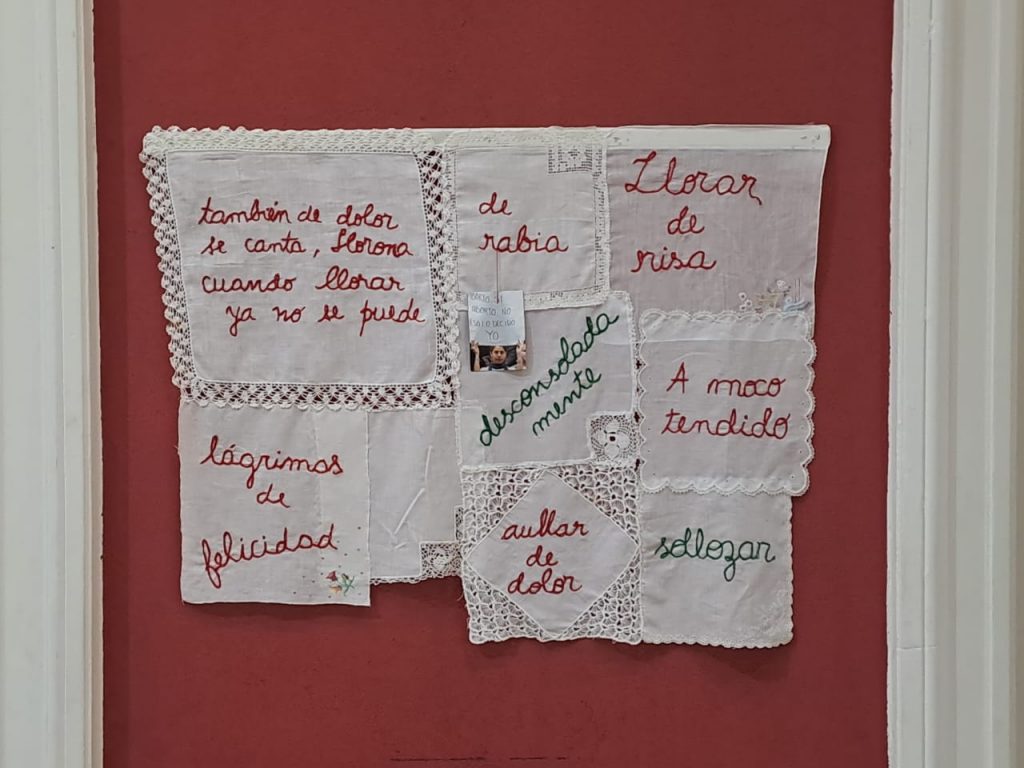 también de dolor
se canta, Llorona
cuando llorar
ya no se puede
de
rabia
Llorar
de
risa
ABORTO NO
SOLO DECIDO
YO
desconsolada
mente
A moco
tendido
lágrimas
de
felicidad
aullar
de
dolor
sollozar